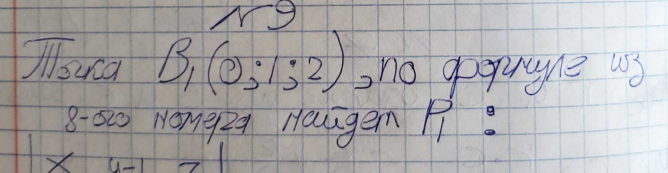 №9
Точка B₁(0;1;2), по формуле из
8-ого номера найдем P₁ :
| x y-1 z |